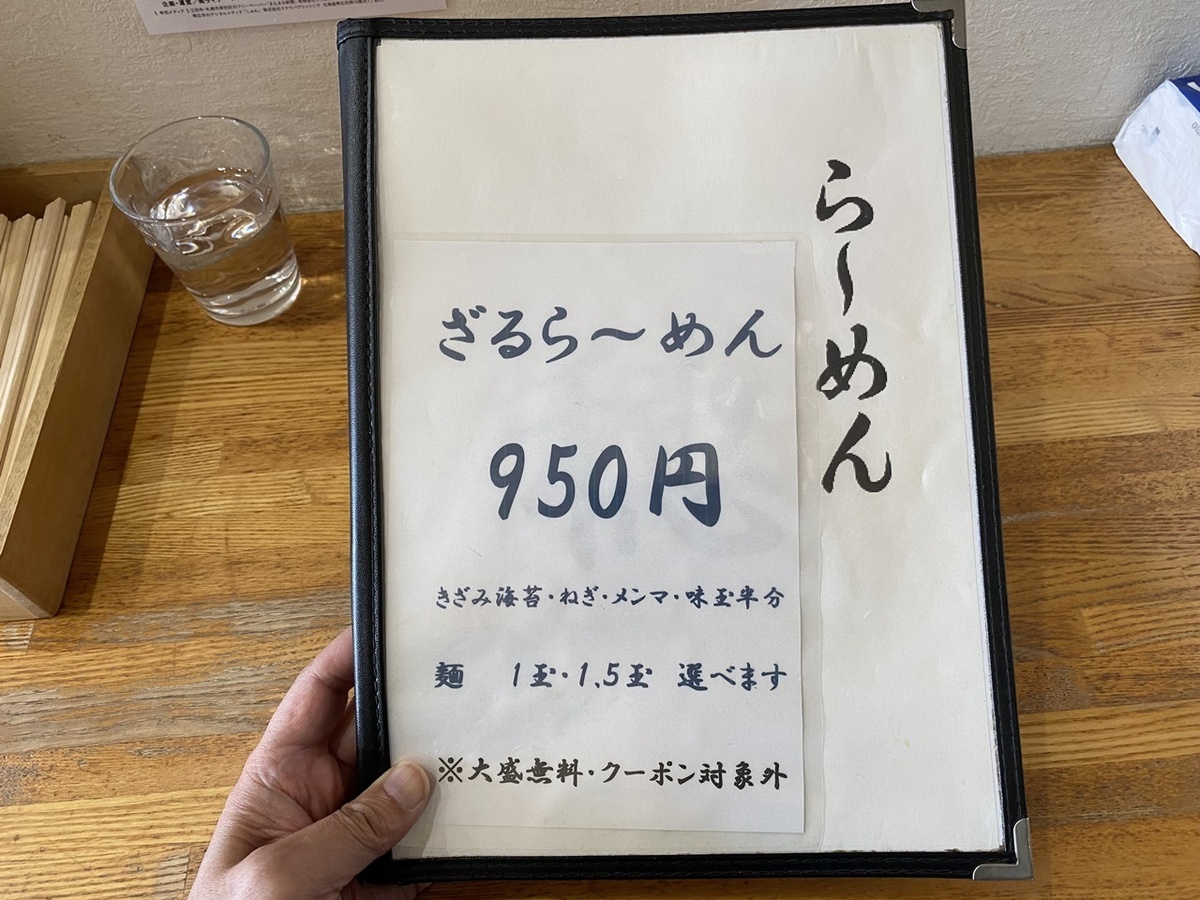 らーめん
ざるら〜めん
950円
きざみ海苔・ねぎ・メンマ・味玉半分
麺 1玉・1.5玉 選べます
※大盛無料・クーポン対象外